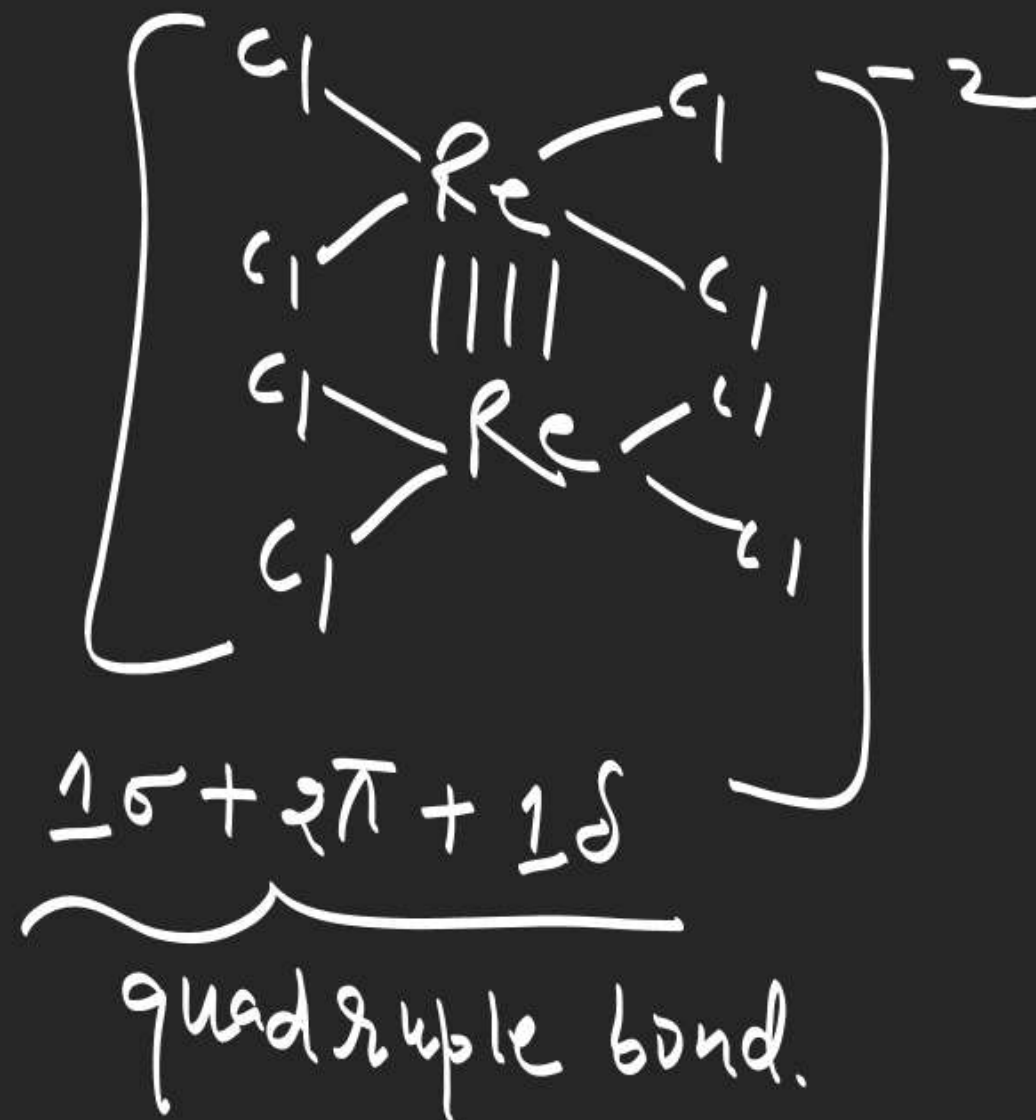 Cl Cl -2
Re
Cl Cl
Cl Cl
Re
Cl Cl
1σ + 2π + 1δ
quadruple bond.